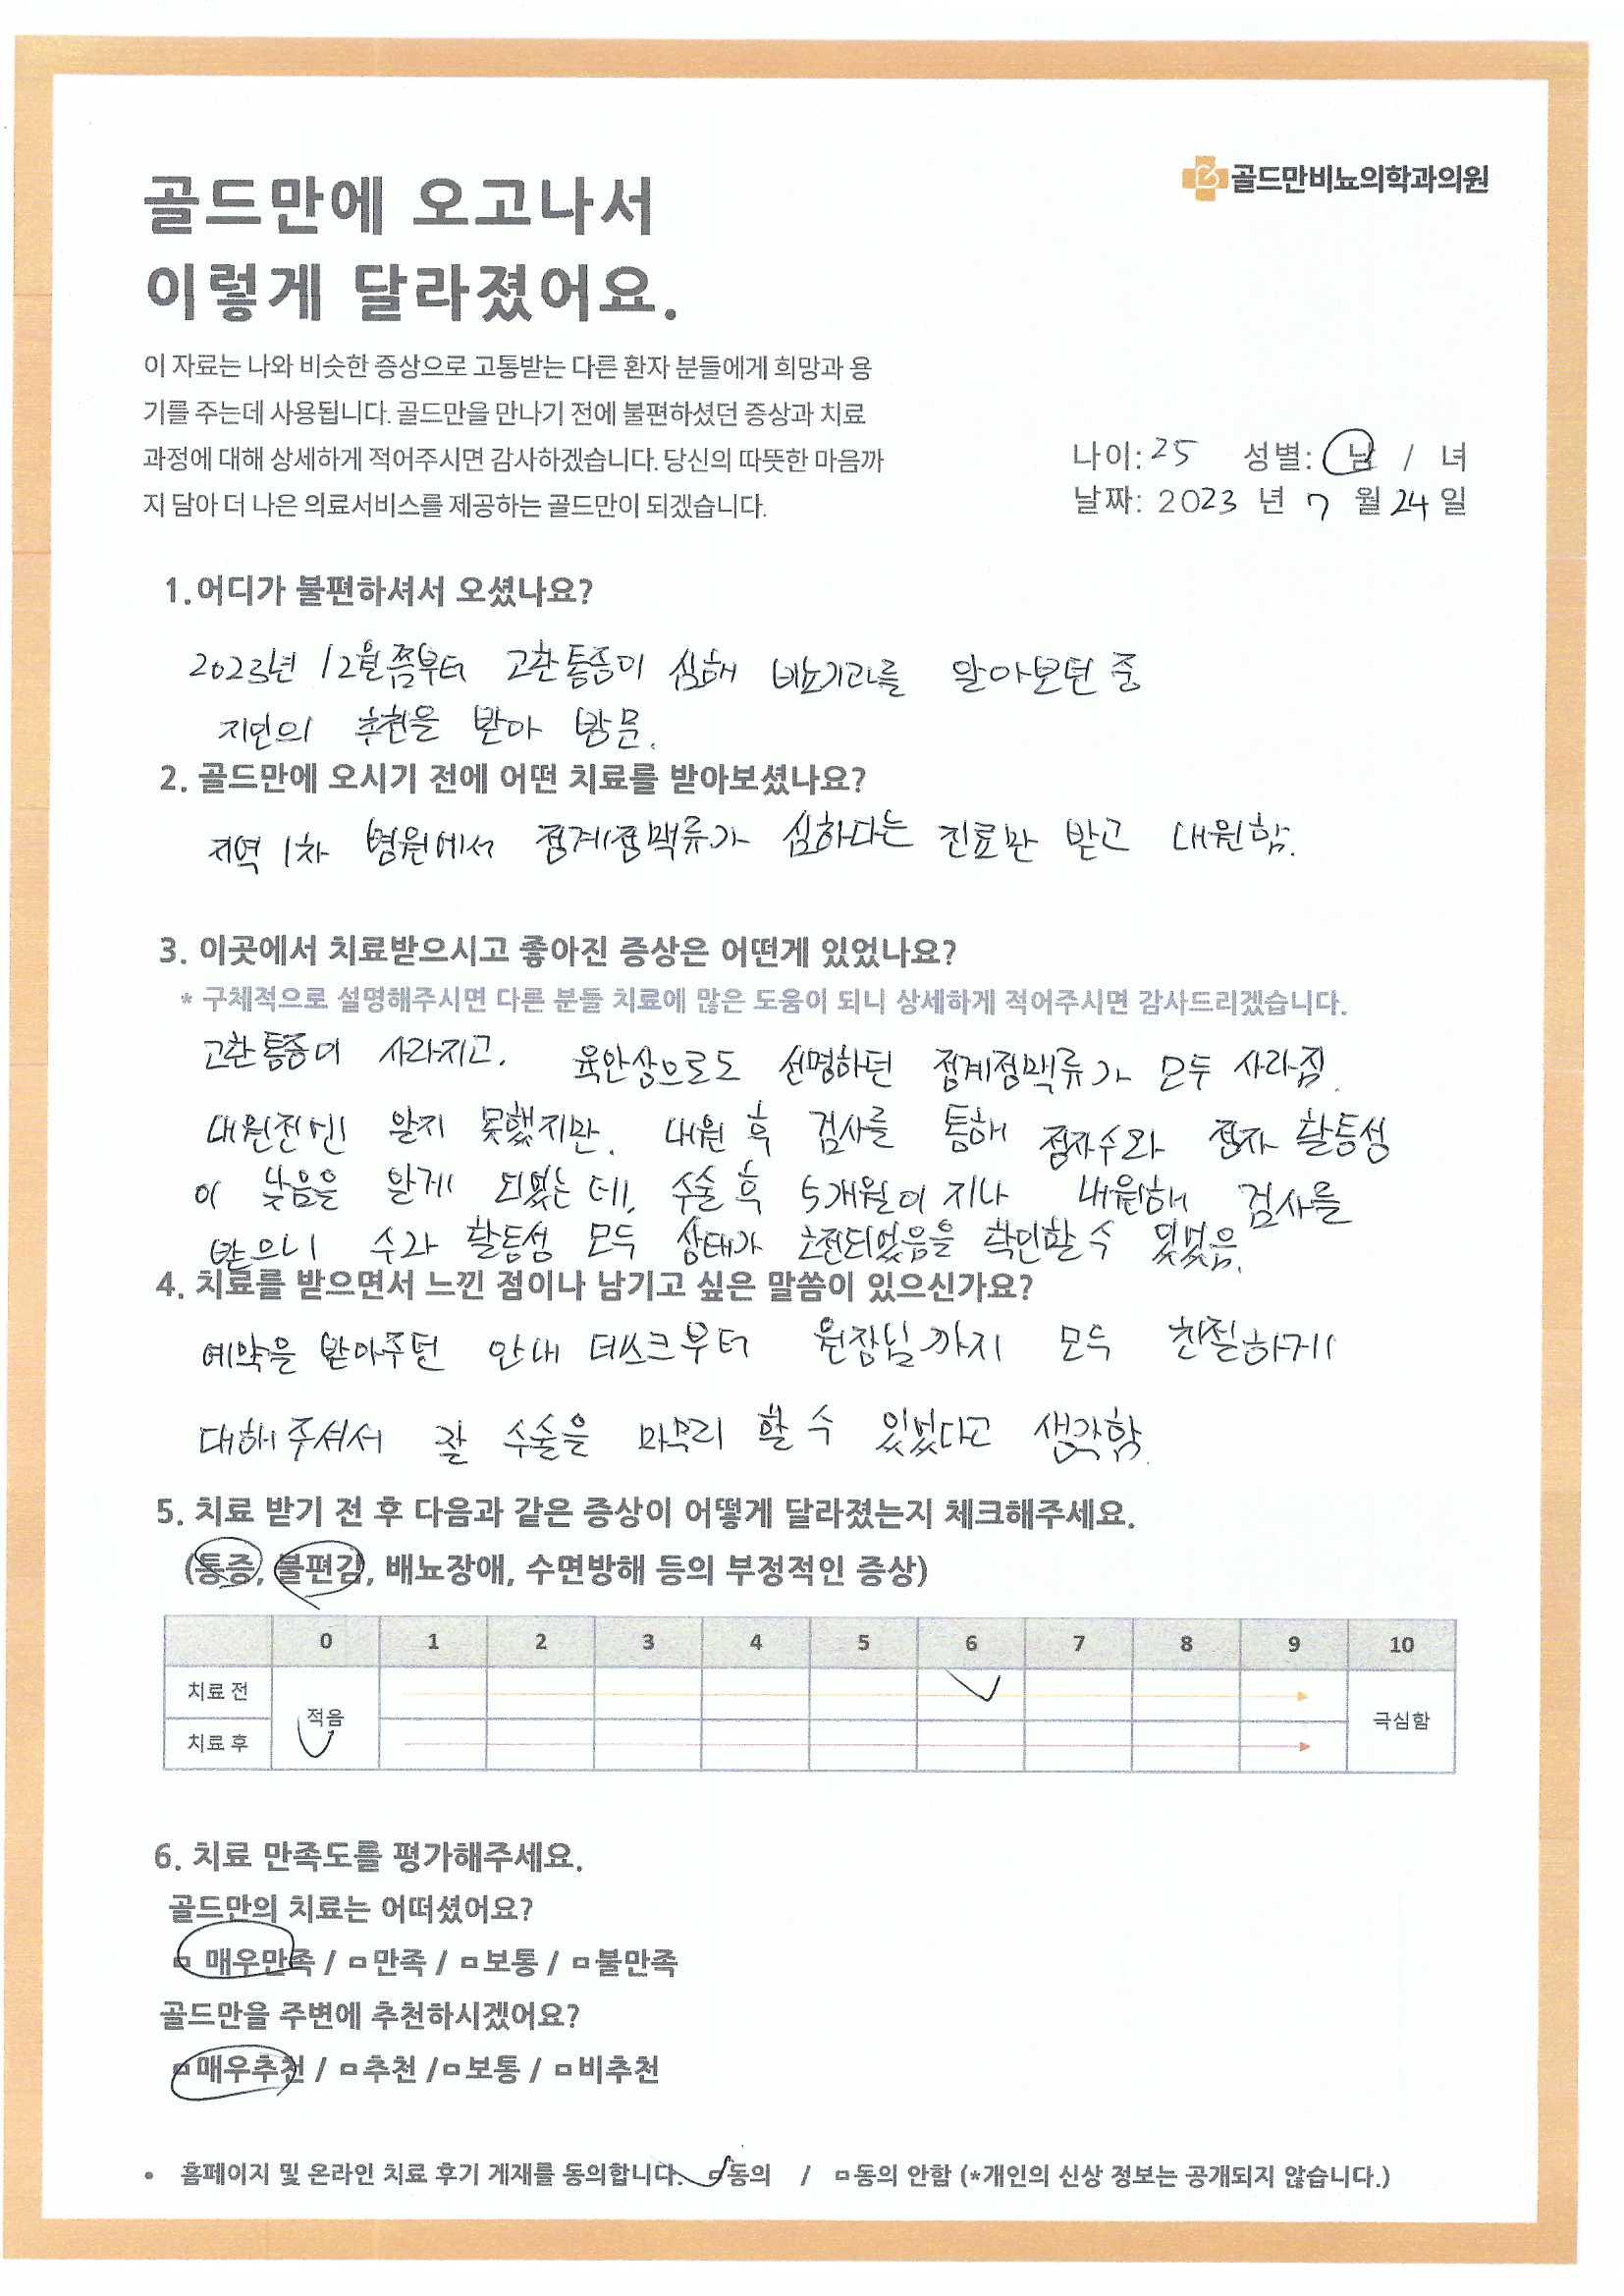 골드만비뇨의학과의원
골드만에 오고나서
이렇게 달라졌어요.
이 자료는 나와 비슷한 증상으로 고통받는 다른 환자 분들에게 희망과 용
기를 주는데 사용됩니다. 골드만을 만나기 전에 불편하셨던 증상과 치료
과정에 대해 상세하게 적어주시면 감사하겠습니다. 당신의 따뜻한 마음까
지 담아 더 나은 의료서비스를 제공하는 골드만이 되겠습니다.
나이: 25 성별: 남 / 녀
날짜: 2023 년 7 월 24 일
1.어디가 불편하셔서 오셨나요?
2023년 12월쯤부터 고환통증이 심해 비뇨기과를 알아보던 중
지인의 추천을 받아 방문.
2. 골드만에 오시기 전에 어떤 치료를 받아보셨나요?
지역 1차 병원에서 정계정맥류가 심하다는 진료만 받고 내원함.
3. 이곳에서 치료받으시고 좋아진 증상은 어떤게 있었나요?
* 구체적으로 설명해주시면 다른 분들 치료에 많은 도움이 되니 상세하게 적어주시면 감사드리겠습니다.
고환통증이 사라지고. 육안상으로도 선명하던 정계정맥류가 모두 사라짐.
내원전엔 알지 못했지만. 내원 후 검사를 통해 정자수와 정자 활동성
이 낮음을 알게 되었는데, 수술 후 5개월이 지나 내원해 검사를
받으니 수와 활동성 모두 상태가 호전되었음을 확인할 수 있었음.
4. 치료를 받으면서 느낀 점이나 남기고 싶은 말씀이 있으신가요?
예약을 받아주던 안내 데스크부터 원장님까지 모두 친절하게
대해주셔서 잘 수술을 마무리 할 수 있었다고 생각함.
5. 치료 받기 전 후 다음과 같은 증상이 어떻게 달라졌는지 체크해주세요.
(통증, 불편감, 배뇨장애, 수면방해 등의 부정적인 증상)
0 1 2 3 4 5 6 7 8 9 10
치료 전
적음
극심함
치료 후
6. 치료 만족도를 평가해주세요.
골드만의 치료는 어떠셨어요?
□ 매우만족 / □ 만족 / □ 보통 / □ 불만족
골드만을 주변에 추천하시겠어요?
□ 매우추천 / □ 추천 / □ 보통 / □ 비추천
• 홈페이지 및 온라인 치료 후기 게재를 동의합니다. □동의 / □동의 안함 (*개인의 신상 정보는 공개되지 않습니다.)